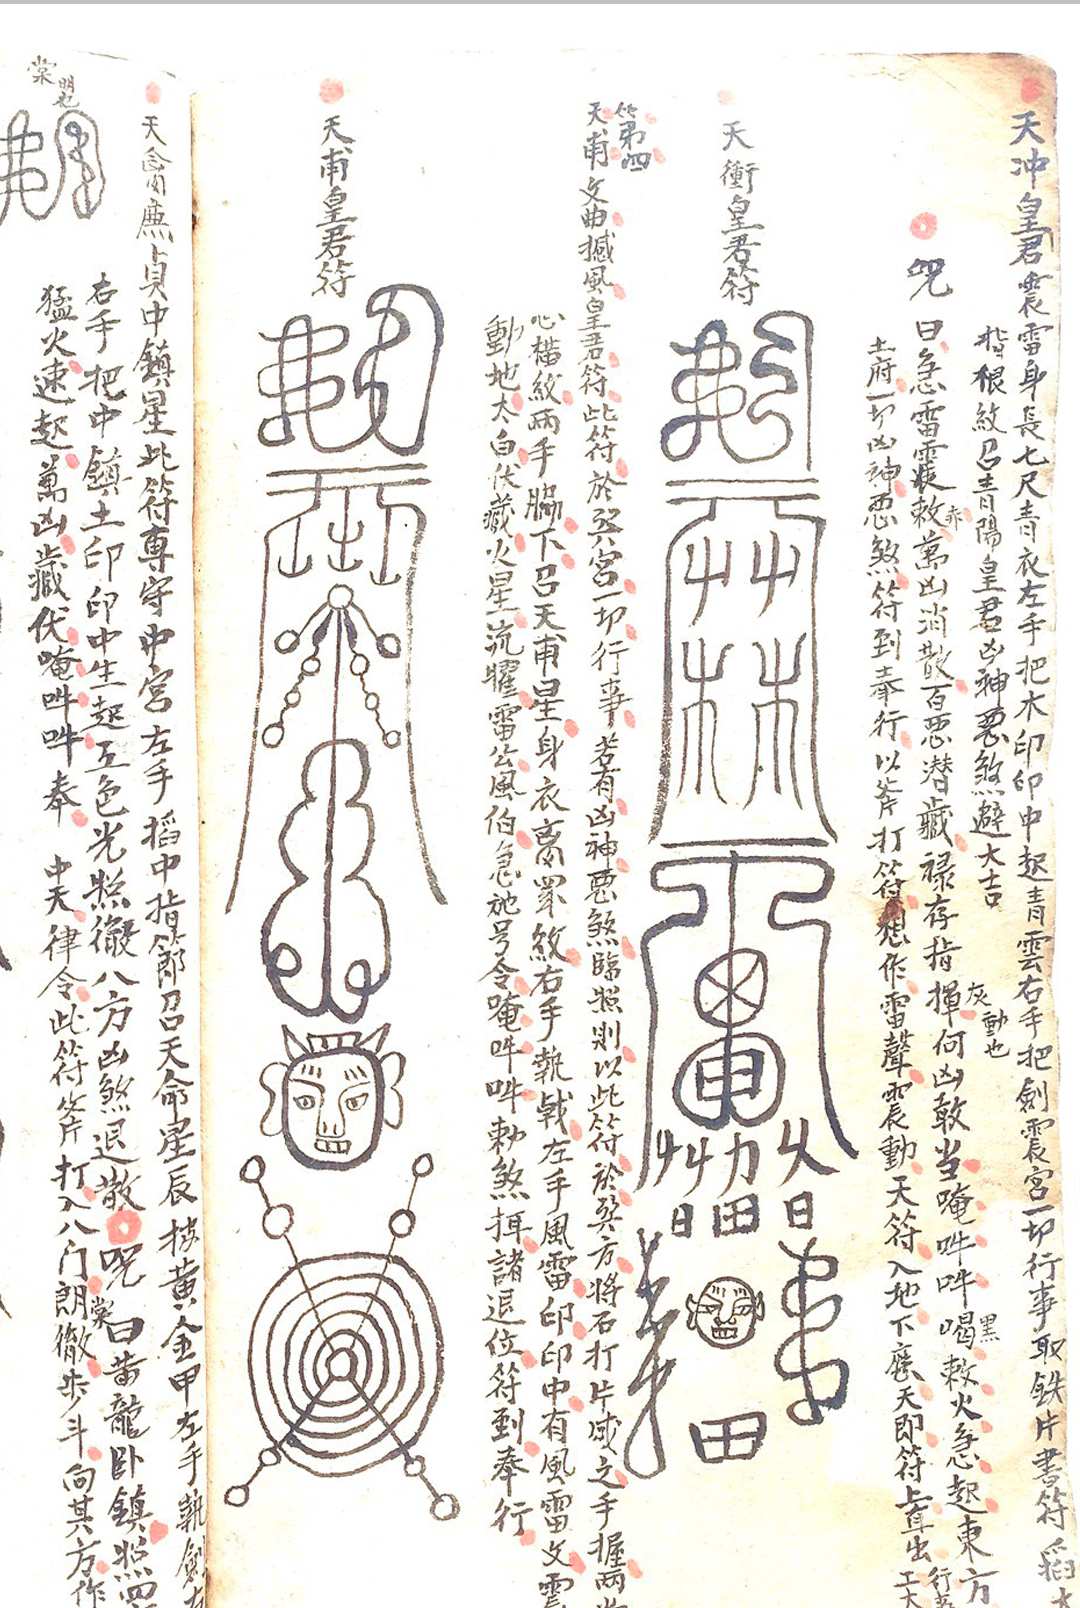 天冲皇君震雷身長七尺青衣左手把木印印中起青雲右手把劍震宮一切行事取鉄片書符
指根紋召青陽皇君凶神惡煞避大吉
咒
曰急雷霆敕萬凶消散百惡潜藏禄存指揮何凶敢当唵吽吽喝敕火急起東方
赤
灰動也
黑
行事
土府一切凶神惡煞符到奉行以斧打符想作雷聲震動天符入地下應天即符上直出
天衝皇君符
第四
天甫文曲撼風皇君符此符於巽宮一切行事若有凶神惡煞臨照則以此符於巽方將石打片咸之手握两
心横紋两手脇下召天甫星身衣离罡紋右手執戟左手風雷印印中有風雷文
動地太白伏藏火星流曜雷公風伯急施号令唵吽吽勅煞摧諸退位符到奉行
天甫皇君符
天禽廉貞中鎮星此符專守中宮左手搯中指節召天禽星辰披黄金甲左手執劍
右手把中鎮土印印中生起五色光照徹八方凶煞退散咒曰黄龍卧鎮照四
猛火速起萬凶藏伏唵吽吽奉中天律令此符斧打入八门朗徹步斗向其方作
棠
明也
棠